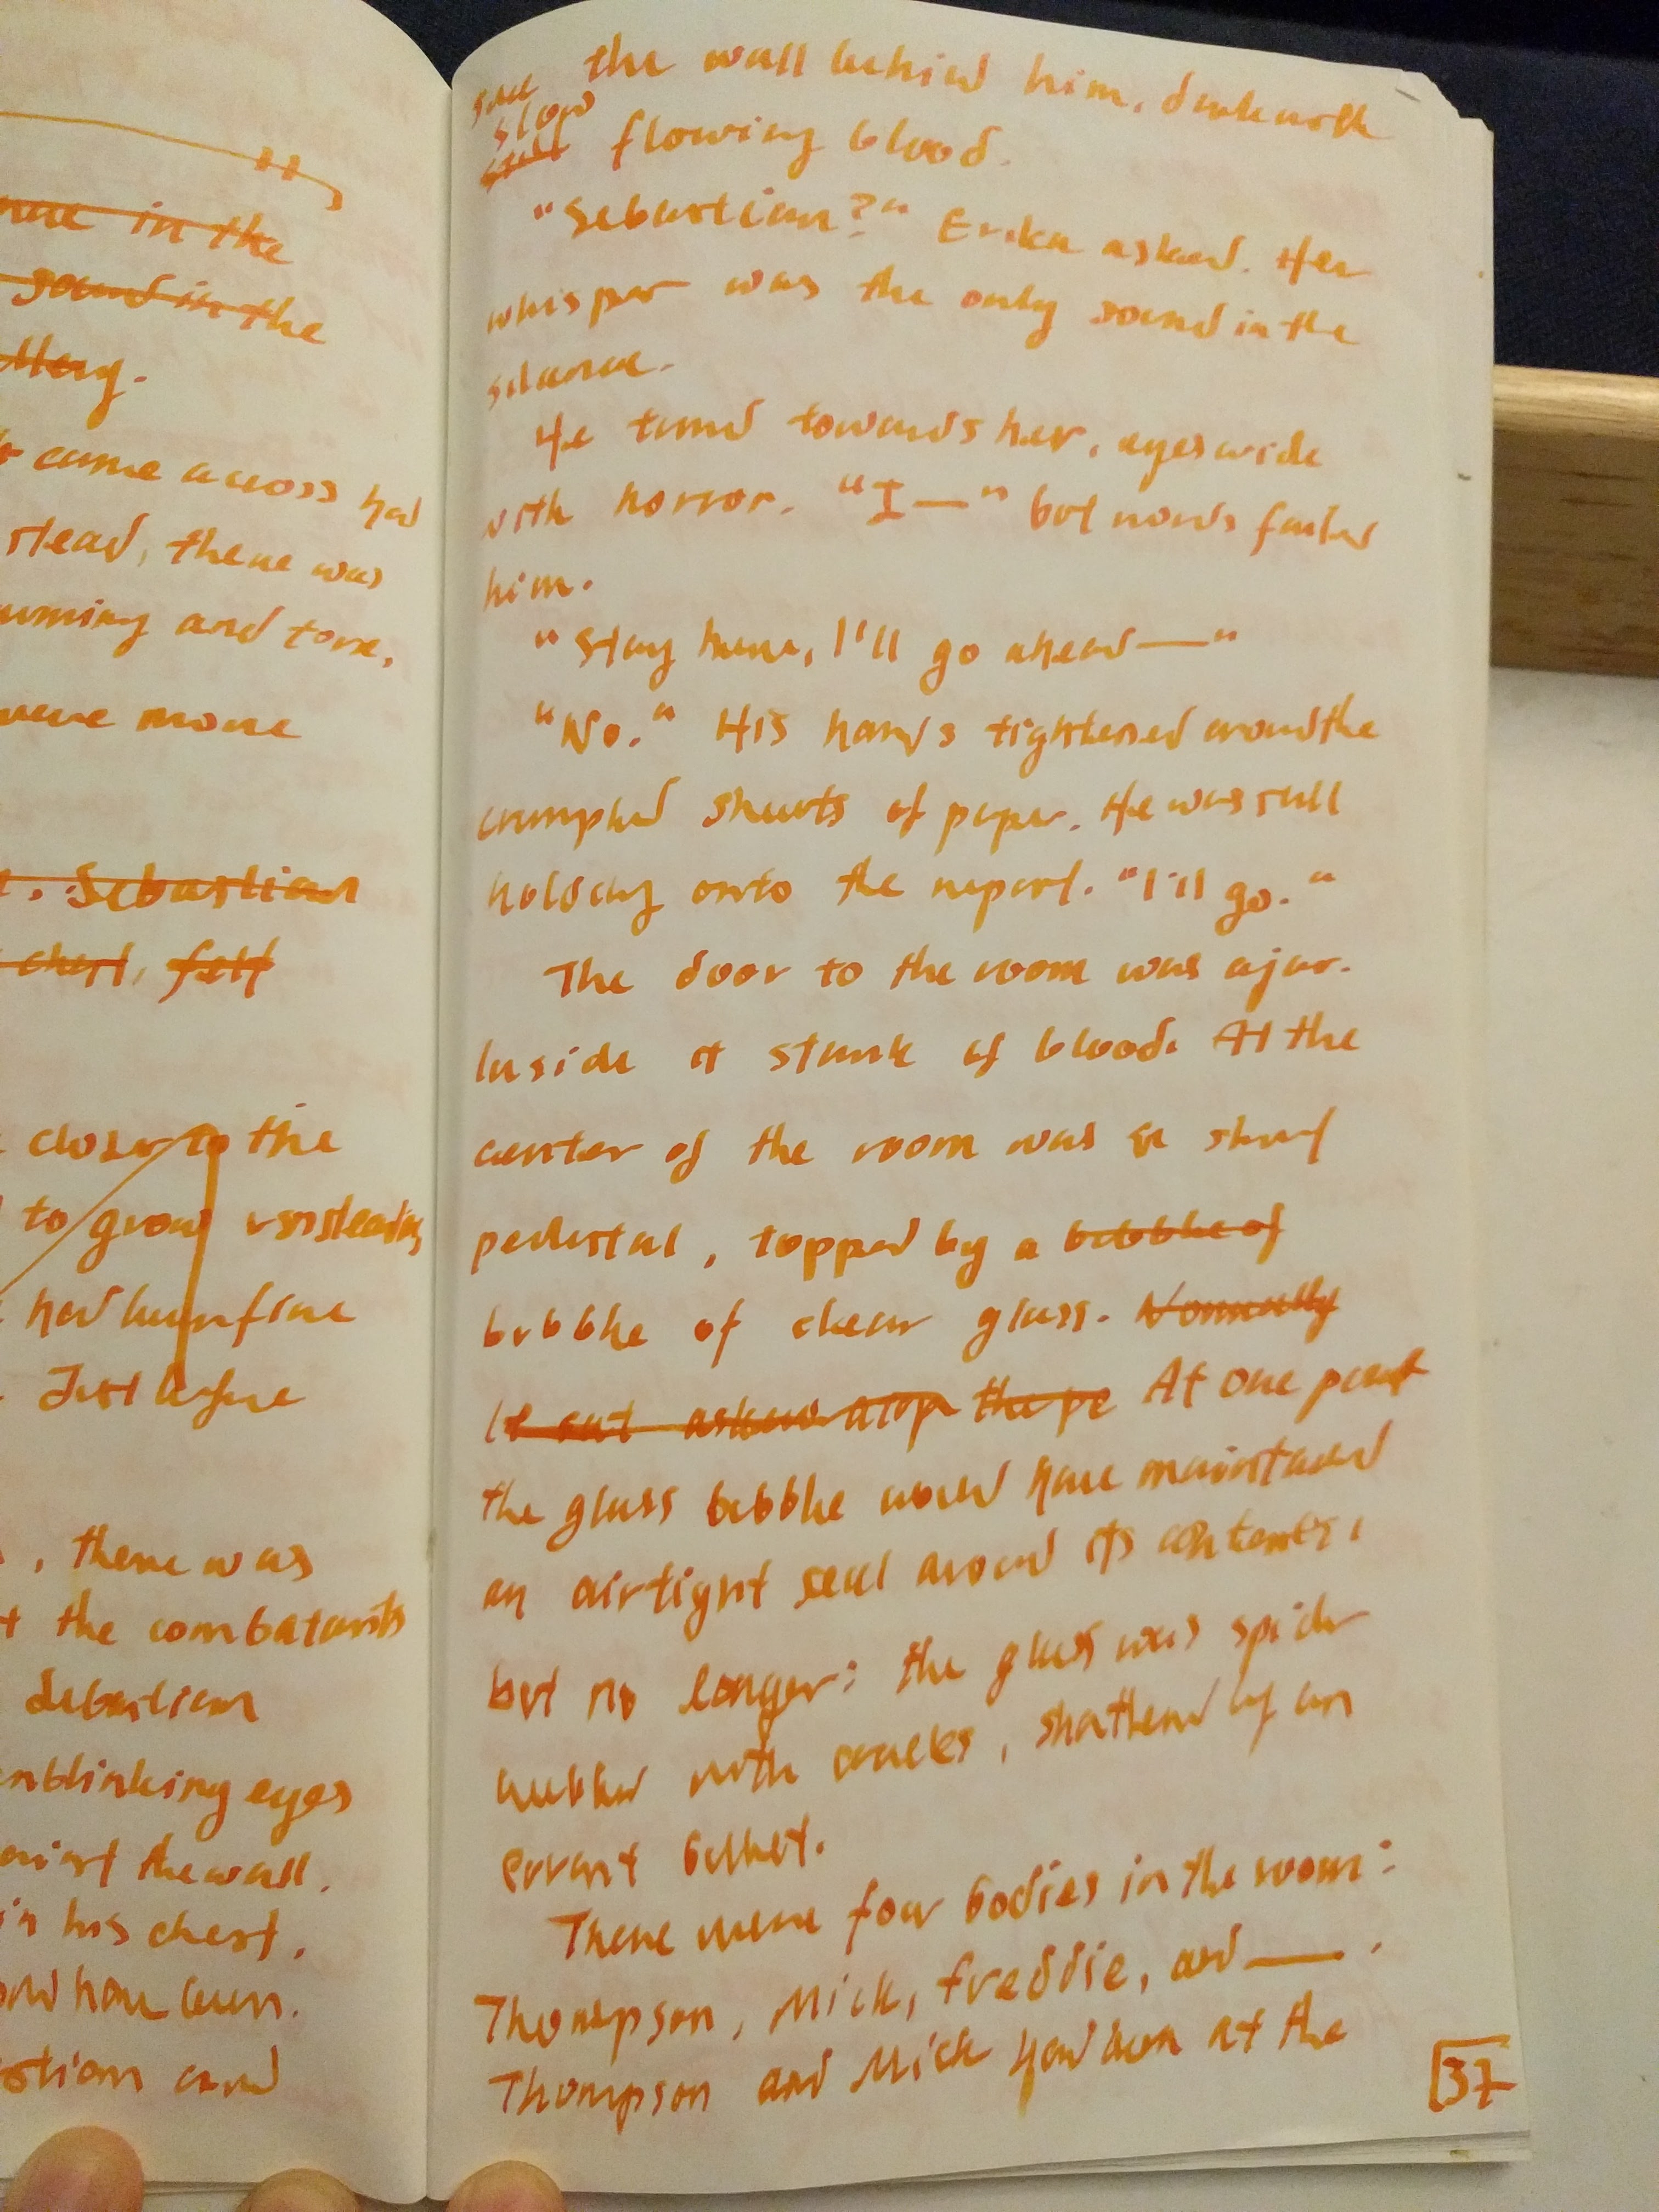 in the
sound in the
came across had
stead, there was
and torn,
were more
Sebastian
chest, felt
closer to the
to grow unsteady,
had been fine
Just before
, there was
the combatants
Sebastian
unblinking eyes
against the wall.
in his chest.
have been.
and
the wall behind him, dark with
slow
still flowing blood.
"Sebastian?" Erika asked. Her
whisper was the only sound in the
silence.
He turned towards her, eyes wide
with horror. "I—" but words failed
him.
"Stay here, I'll go ahead—"
"No." His hands tightened around the
crumpled sheets of paper. He was still
holding onto the report. "I'll go."
The door to the room was ajar.
Inside it stunk of blood. At the
center of the room was a short
pedestal, topped by a bubble of
bubble of clear glass. Normally
It sat askew atop the pe At one point
the glass bubble would have maintained
an airtight seal around its contents,
but no longer: the glass was spider
webbed with cracks, shattered by an
errant bullet.
There were four bodies in the room:
Thompson, Mick, Freddie, and —.
Thompson and Mick had been at the
37